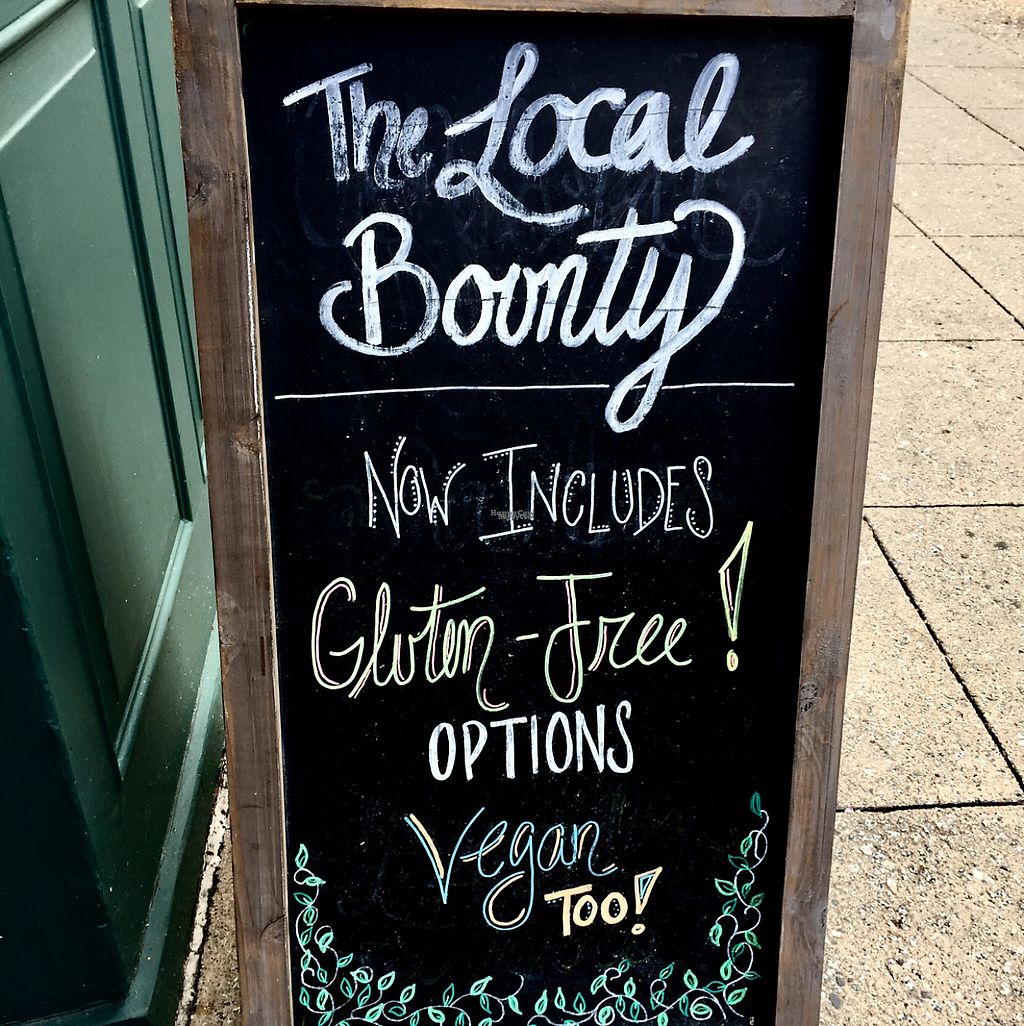 The Local
Bounty
Now Includes
Gluten-Free!
OPTIONS
Vegan
Too!
HappyCow